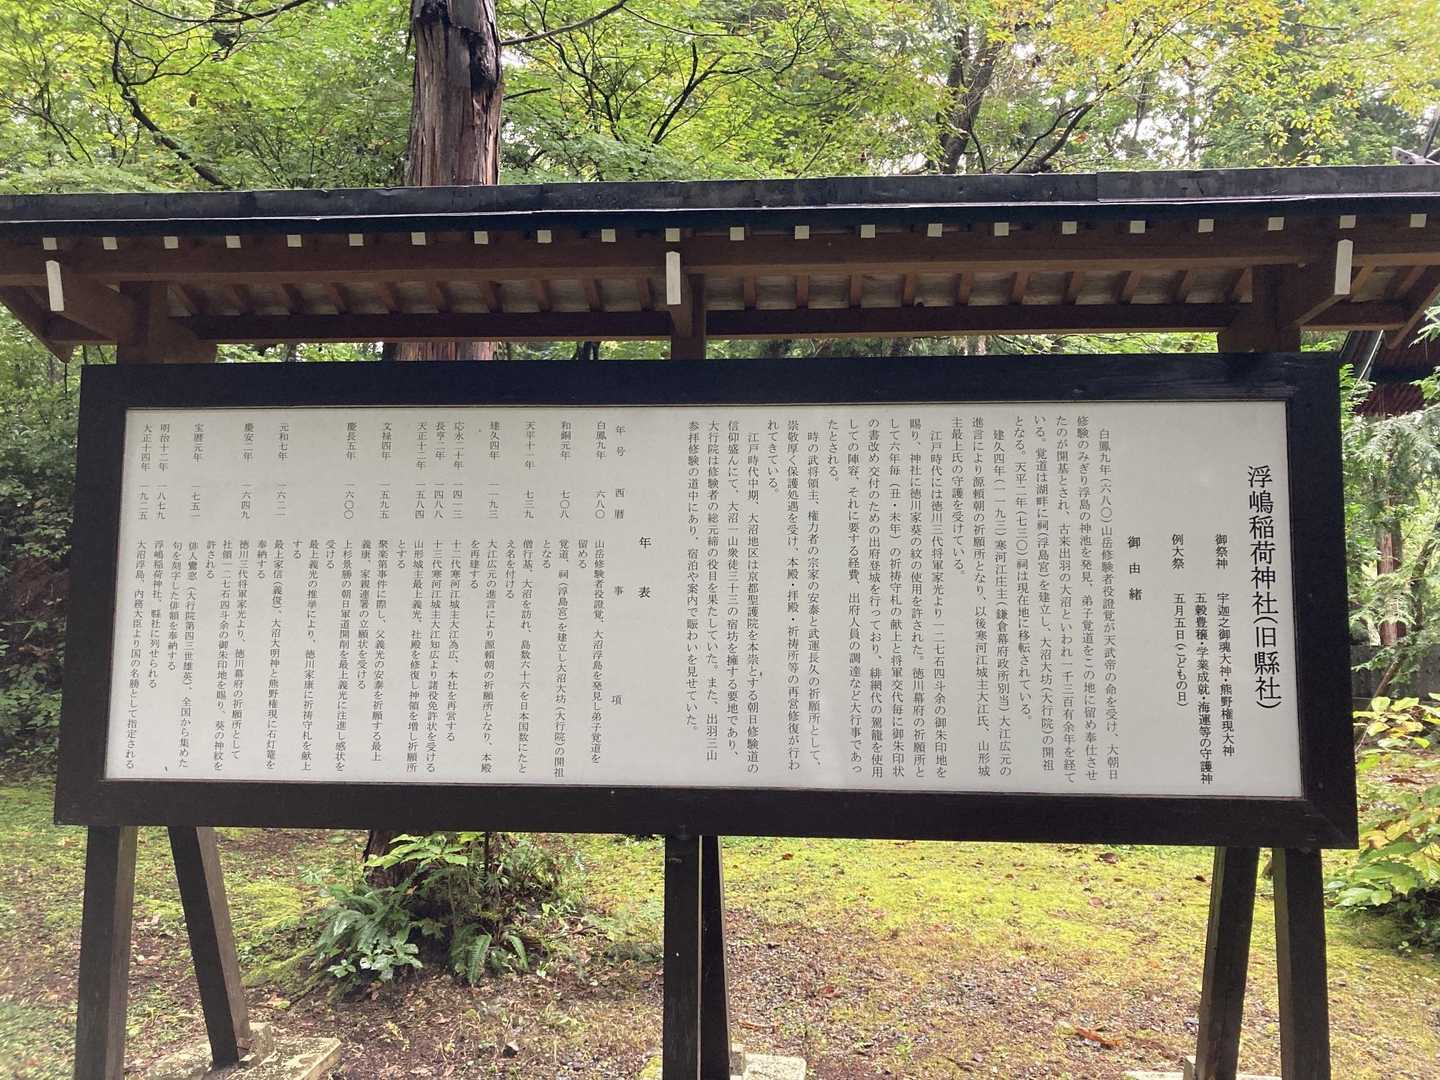 浮嶋稲荷神社(旧縣社)
御祭神　宇迦之御魂大神・熊野権現大神
五穀豊穣・学業成就・海運等の守護神
例大祭　五月五日(こどもの日)
御由緒
白鳳九年(六八〇)山岳修験者役證覚が天武帝の命を受け、大朝日
修験のみぎり浮島の神池を発見、弟子覚道をこの地に留め奉仕させ
たのが開基とされ、古来出羽の大沼といわれ一千三百有余年を経て
いる。覚道は湖畔に祠(浮島宮)を建立し、大沼大坊(大行院)の開祖
となる。天平二年(七三〇)祠は現在地に移転されている。
建久四年(一一九三)寒河江庄主(鎌倉幕府政所別当)大江広元の
進言により源頼朝の祈願所となり、以後寒河江城主大江氏、山形城
主最上氏の守護を受けている。
江戸時代には徳川三代将軍家光より一二七石四斗余の御朱印地を
賜り、神社に徳川家葵の紋の使用を許された。徳川幕府の祈願所と
して六年毎(丑・未年)の祈祷守札の献上と将軍交代毎に御朱印状
の書改め交付のための出府登城を行っており、緋網代の駕籠を使用
しての陣容、それに要する経費、出府人員の調達など大行事であっ
たとされる。
時の武将領主、権力者の宗家の安泰と武運長久の祈願所として、
崇敬厚く保護処遇を受け、本殿・拝殿・祈祷所等の再営修復が行わ
れてきている。
江戸時代中期、大沼地区は京都聖護院を本崇とする朝日修験道の
信仰盛んにて、大沼一山衆徒三十三の宿坊を擁する要地であり、
大行院は修験者の総元締の役目を果たしていた。また、出羽三山
参拝修験の道中にあり、宿泊や案内で賑わいを見せていた。
年表
年号　西暦　事項
白鳳九年　六八〇　山岳修験者役證覚、大沼浮島を発見し弟子覚道を
留める
和銅元年　七〇八　覚道、祠(浮島宮)を建立し大沼大坊(大行院)の開祖
となる
天平十一年　七三九　僧行基、大沼を訪れ、島数六十六を日本国数にたと
え名を付ける
建久四年　一一九三　大江広元の進言により源頼朝の祈願所となり、本殿
を再建する
応永二十年　一四一三　十二代寒河江城主大江為広、本社を再営する
長亨二年　一四八八　十三代寒河江城主大江知広より諸役免許状を受ける
天正十二年　一五八四　山形城主最上義光、社殿を修復し神領を増し祈願所
とする
文禄四年　一五九五　聚楽第事件に際し、父義光の安泰を祈願する最上
義康、家親連署の立願状を受ける
慶長五年　一六〇〇　上杉景勝の朝日軍道開削を最上義光に注進し感状を
受ける
最上義光の推挙により、徳川家康に祈祷守札を献上
する
元和七年　一六二一　最上家信(義俊)、大沼大明神と熊野権現に石灯篭を
奉納する
慶安二年　一六四九　徳川三代将軍家光より、徳川幕府の祈願所として
社領一二七石四斗余の御朱印地を賜り、葵の神紋を
許される
宝暦元年　一七五一　俳人鷺窓(大行院第四三世雄英)、全国から集めた
句を刻字した俳額を奉納する
明治十二年　一八七九　浮嶋稲荷神社、縣社に列せられる
大正十四年　一九二五　大沼浮島、内務大臣より国の名勝として指定される